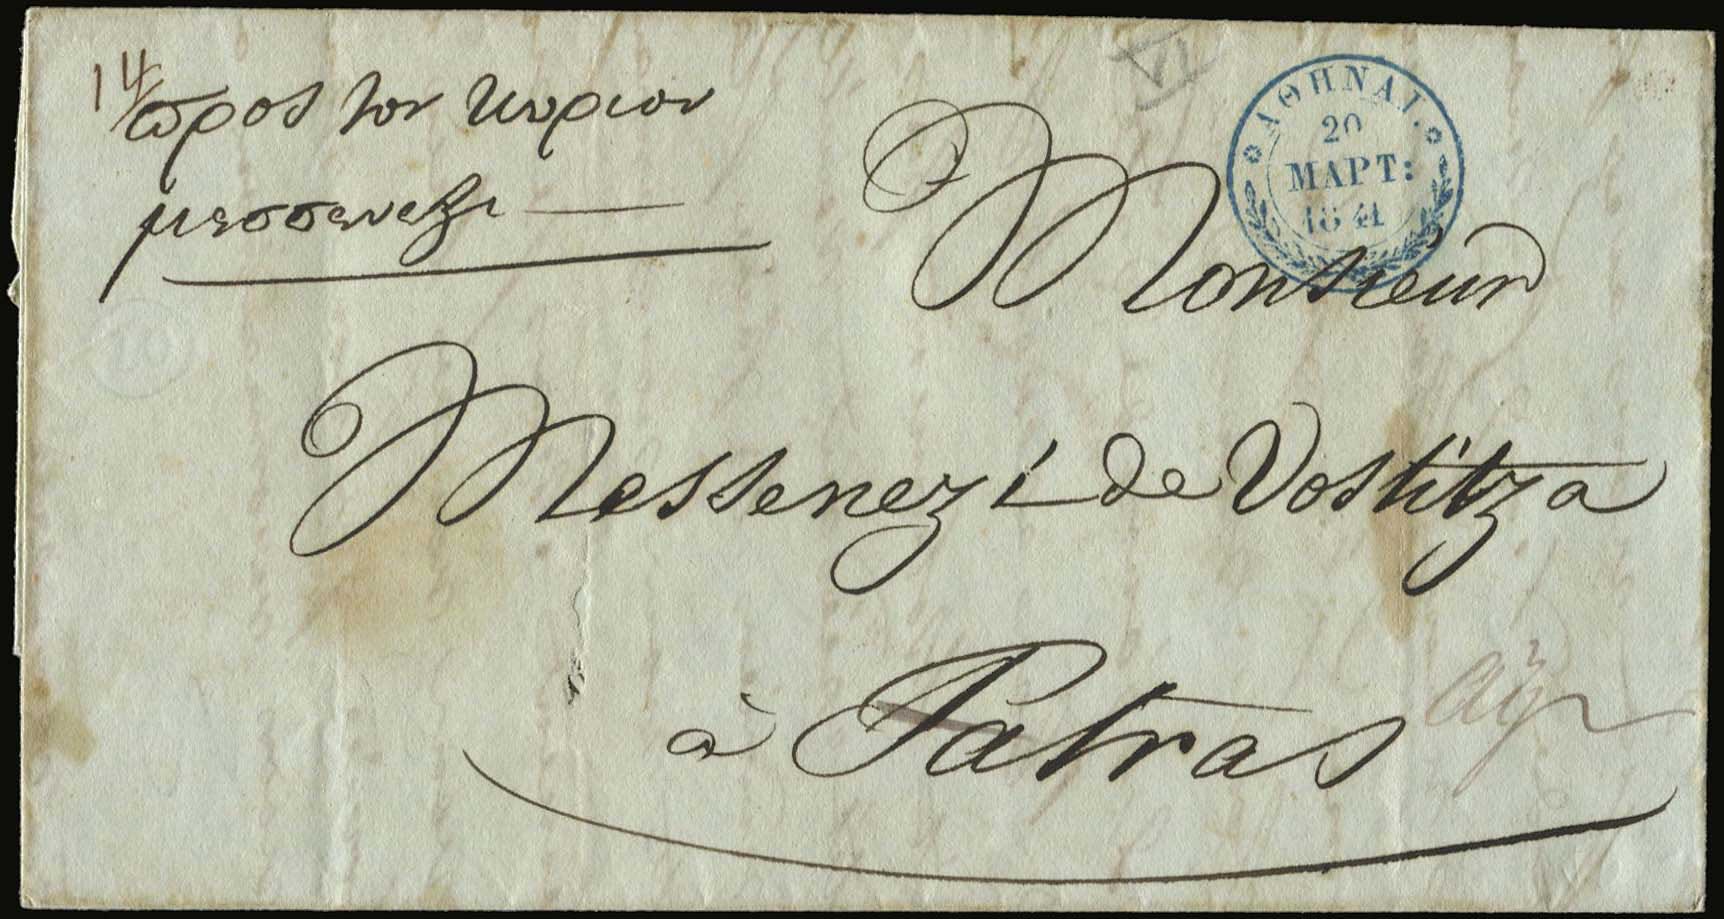 14
προς τον κυριον
μεσσενεζι
ΑΘΗΝΑΙ.
20
ΜΑΡΤ:
1841
Monsieur
Messenezi de Vostitza
à Patras